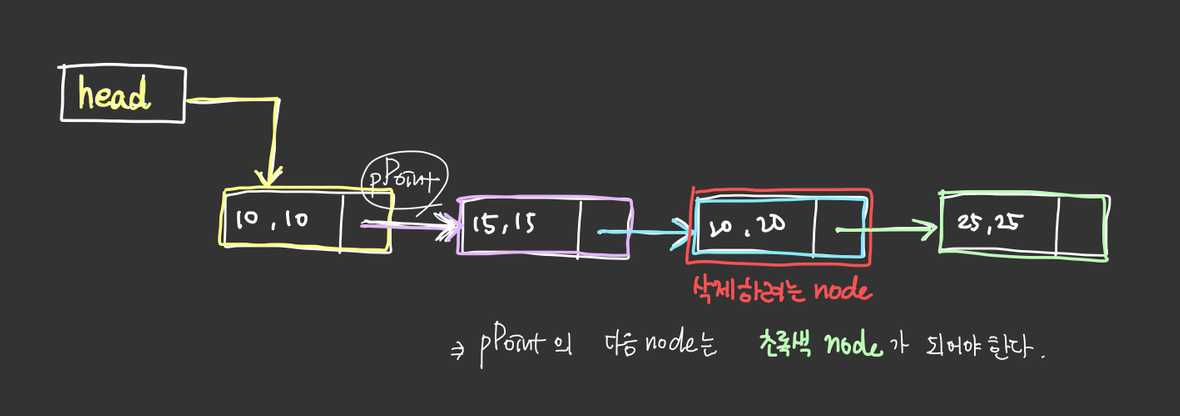 head
pPoint
10,10
15,15
20,20
25,25
삭제하려는 node
⇒ pPoint의 다음 node는 초록색 node가 되어야 한다.